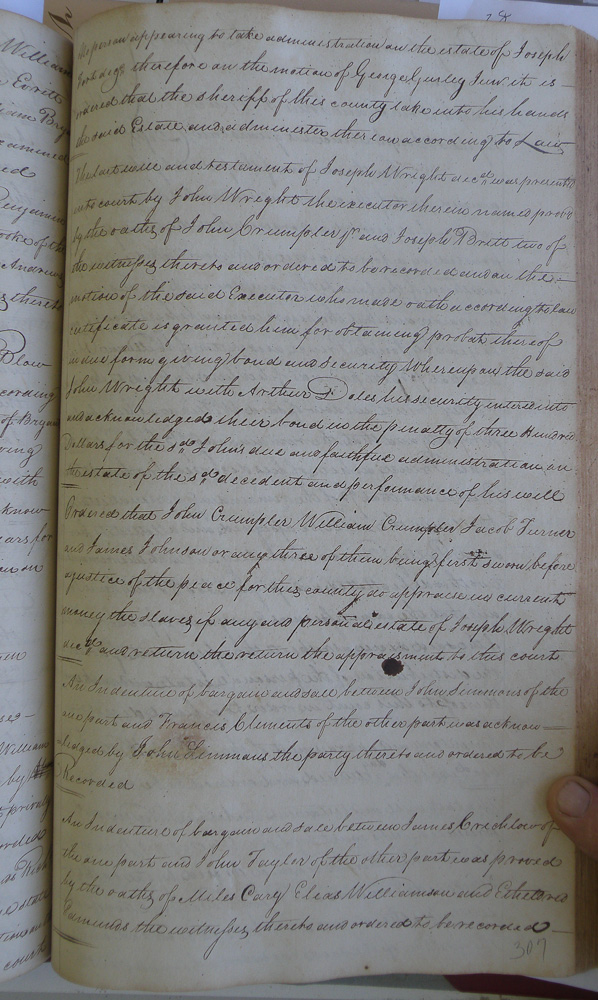 No person appearing to take administration on the estate of Joseph
therefore on the motion of George Gurley Junr it is
ordered that the sheriff of this county take into his hands
the said Estate and administer thereon according to Law
The last will and testament of Joseph Wright decd. was presented
into court by John Wright the executor therein named proved
by the oaths of John Crumpler jr and Joseph Brett two of
the witnesses thereto and ordered to be recorded and on the
motion of the said Executor who made oath according to law
certificate is granted him for obtaining probat thereof
in due form giving bond and security Whereupon the said
John Wright with Arthur Doles his security intered into
and acknowledged their bond in the penalty of three Hundred
Dollars for the sd. John's due and faithful administration on
the estate of the sd. decedent and performance of his will
Ordered that John Crumpler William Crumpler Jacob Turner
and James Johnson or any three of them being first sworn before
a justice of the peace for this county do appraise in current
money the slaves if any and personal estate of Joseph Wright
decd. and return the return the appraisment to this court
An Indenture of bargain and sale between John Simmons of the
one part and Francis Clements of the other part was acknow-
ledged by John Simmons the party thereto and ordered to be
Recorded
An Indenture of bargain and sale between James Crichlow of
the one part and John Taylor of the other part was proved
by the oaths of Miles Cary Elias Williamson and Ethelred
Edmunds the witnesses thereto and ordered to be recorded
307